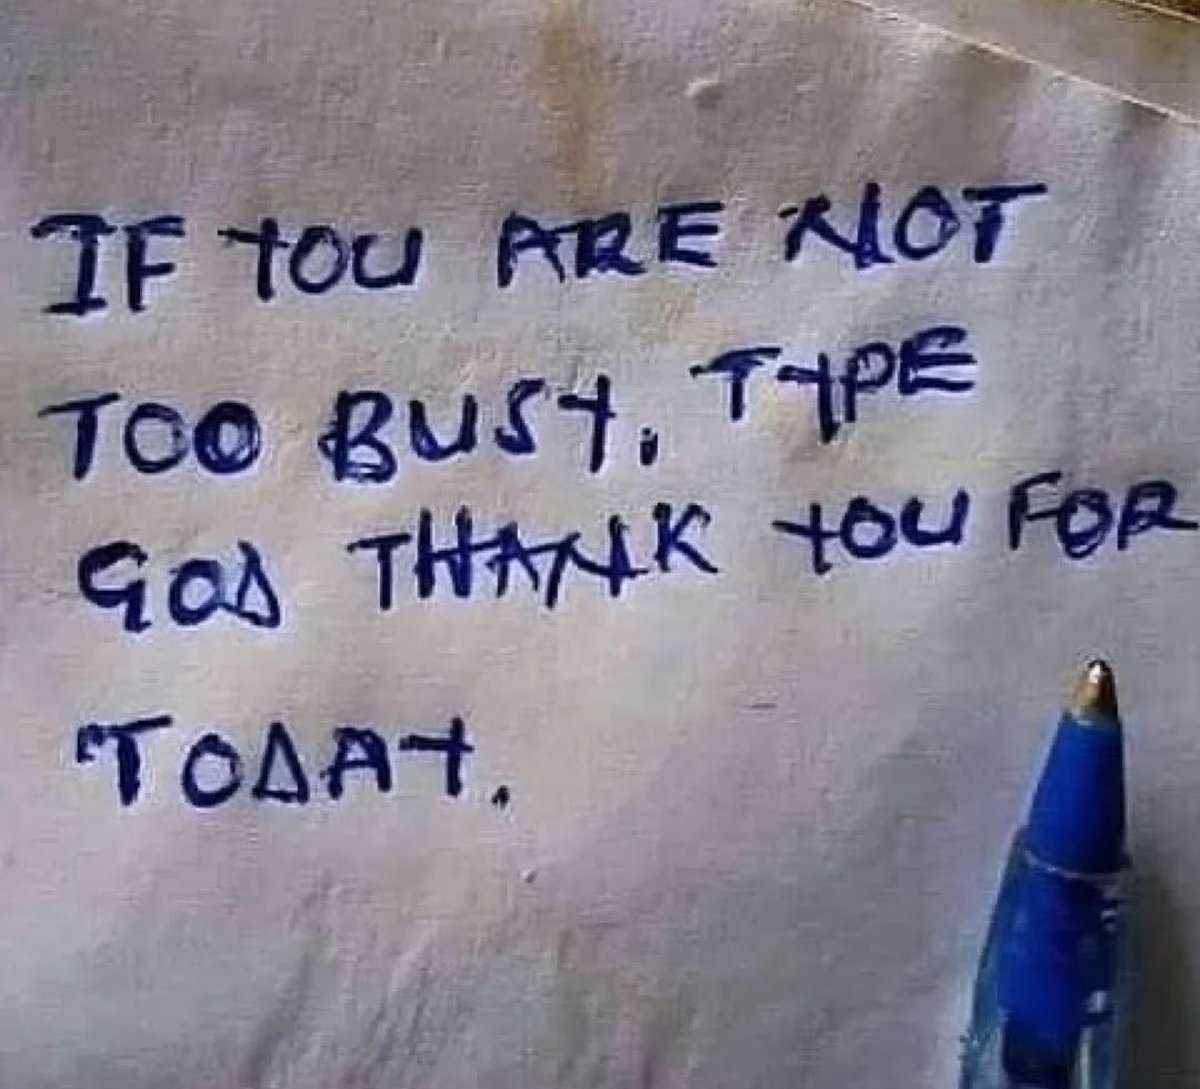 IF YOU ARE NOT
TOO BUSY. TYPE
GOD THANK YOU FOR
TODAY.